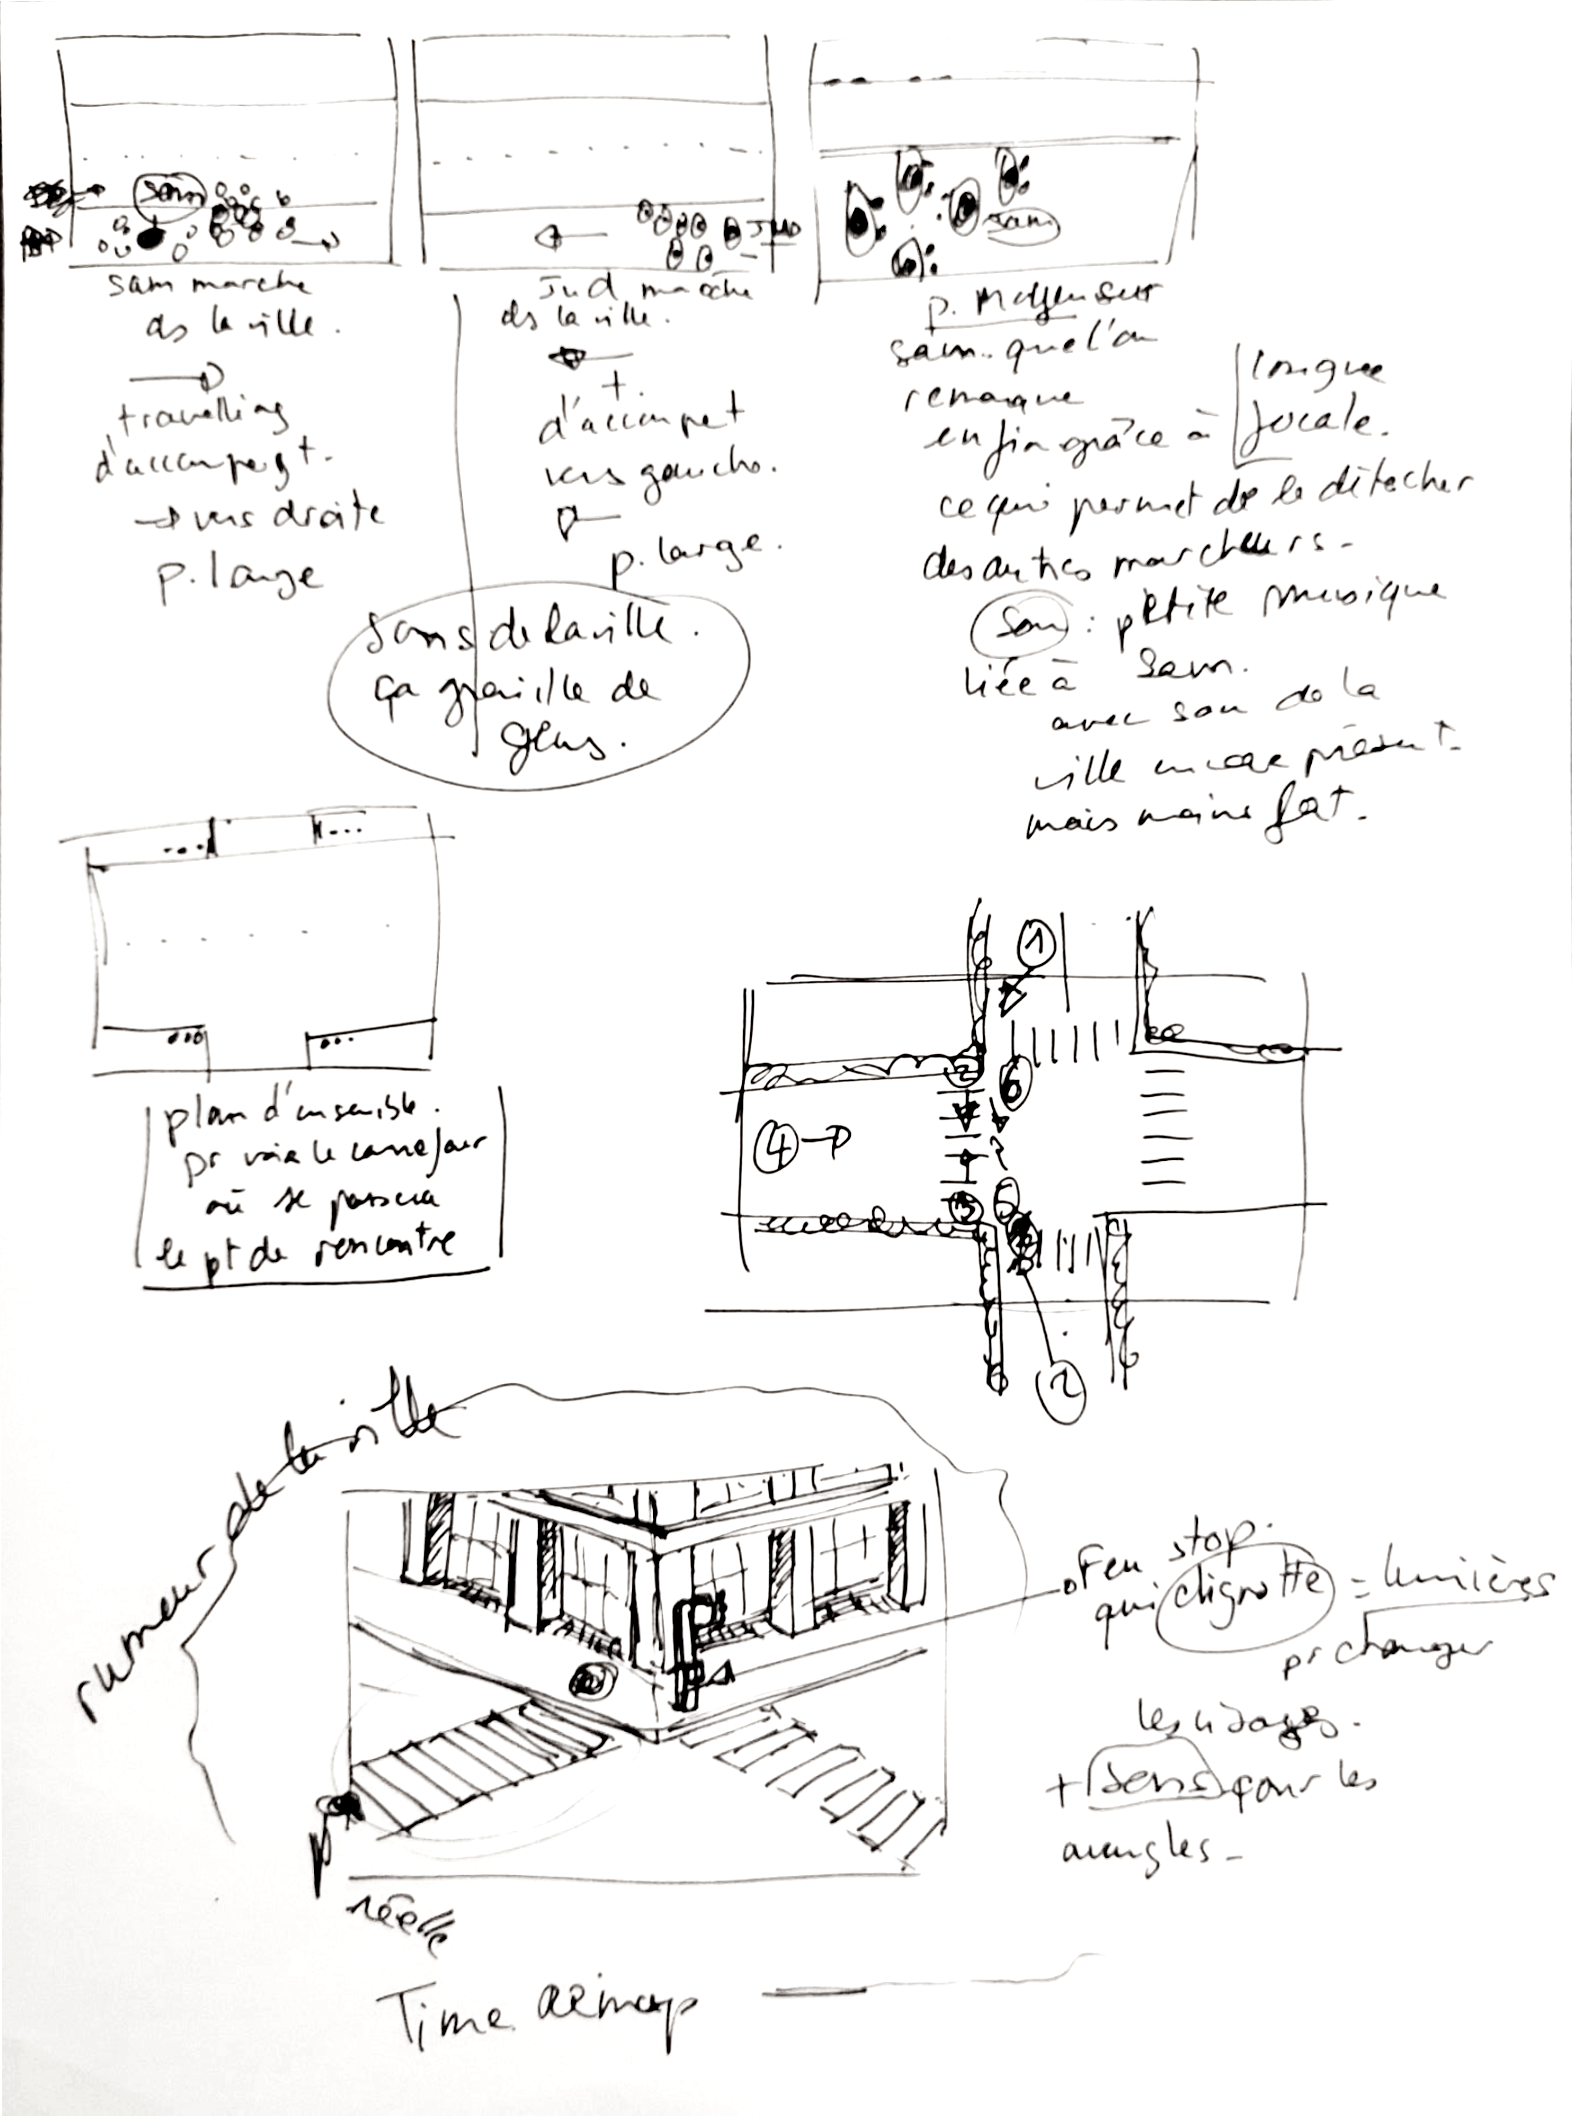 Sam
Sam marche
ds la ville.
travelling
d'accompgt.
→ vers droite
p. large
JUD
Jud marche
ds la ville.
+
d'accompgt
vers gauche.
p. large.
sons de la ville.
ça grouille de
gens.
Sam
p. Moyen sur
Sam. que l'on
remarque
enfin grâce à
longue
focale.
ce qui permet de le détacher
des autres marcheurs.
Son : petite musique
liée à Sam.
avec son de la
ville encore présent
mais moins fort.
plan d'ensemble.
pr voir le carrefour
où se passera
le pt de rencontre
1
2
6
4
3
5
2
rumeur de la ville
Feu stop.
qui clignotte = lumières
pr changer
les visages.
+ sons pour les
aveugles.
réelle
Time